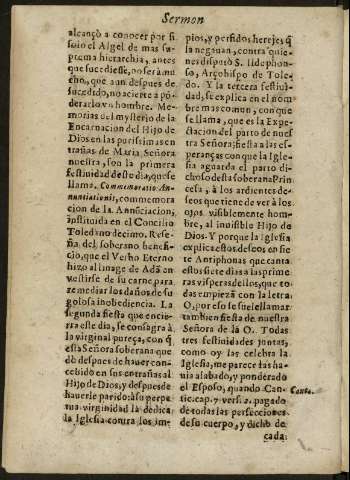 Sermon
alcançò a conocer por si
solo el Algel de mas su-
prema hierarchia, antes
que sucediesse, no serà mu-
cho, que aun despues de
sucedido, no acierte a põ-
derarlo vn hombre. Me-
morias del mysterio de la
Encarnacion del Hijo de
Dios en las purissimas en
trañas de Maria Señora
nuestra, son la primera
festiuidad deste dia, que se
llama. Commemoratio An-
nuntiationis, commemora
cion de la Annũciacion,
instituida en el Concilio
Toledano decimo. Rese-
ña del soberano benefi-
cio, que el Verbo Eterno
hizo al linage de Adã en
vestirse de su carne para
remediar los daños de su
golosa inobediencia. La
segunda fiesta que encie-
rra este dia, se consagra à
la virginal pureça, con q̃
esta Señora soberana que
dò despues de hauer con-
cebido en sus entrañas al
Hijo de Dios, y despues de
hauerle parido: à su perpe
tua virginidad la dedica
la Iglesia contra los im-
pios, y perfidos herejes q̃
la negauan, contra quie-
nes disputò S. Ildephon-
so, Arçobispo de Tole-
do. Y la tercera festiui-
dad, se explica en el nom
bre mas comun, con que
se llama, que es la Expe-
ctacion del parto de nues
tra Señora; fiesta a las es-
peranças con que la Igle-
sia aguarda el parto di-
choso desta soberana Prin
cesa, à los ardientes de-
seos que tiene de ver à los
ojos, visiblemente hom-
bre, al inuisible Hijo de
Dios. Y porque la Iglesia
explica estos deseos en sie
te Antiphonas que canta
estos siete dias a las prime
ras visperas dellos, que to
das empiezã con la letra
O, por eso se suele llamar
tambien fiesta de nuestra
Señora de la O. Todas
tres festiuidades juntas,
como oy las celebra la
Iglesia, me parece las ha-
uia alabado, y ponderado
el Esposo, quando Can-
tic. cap. 7. vers. 2. pagado
Cantic.
de todas las perfecciones
de su cuerpo, y dicho de
cada: